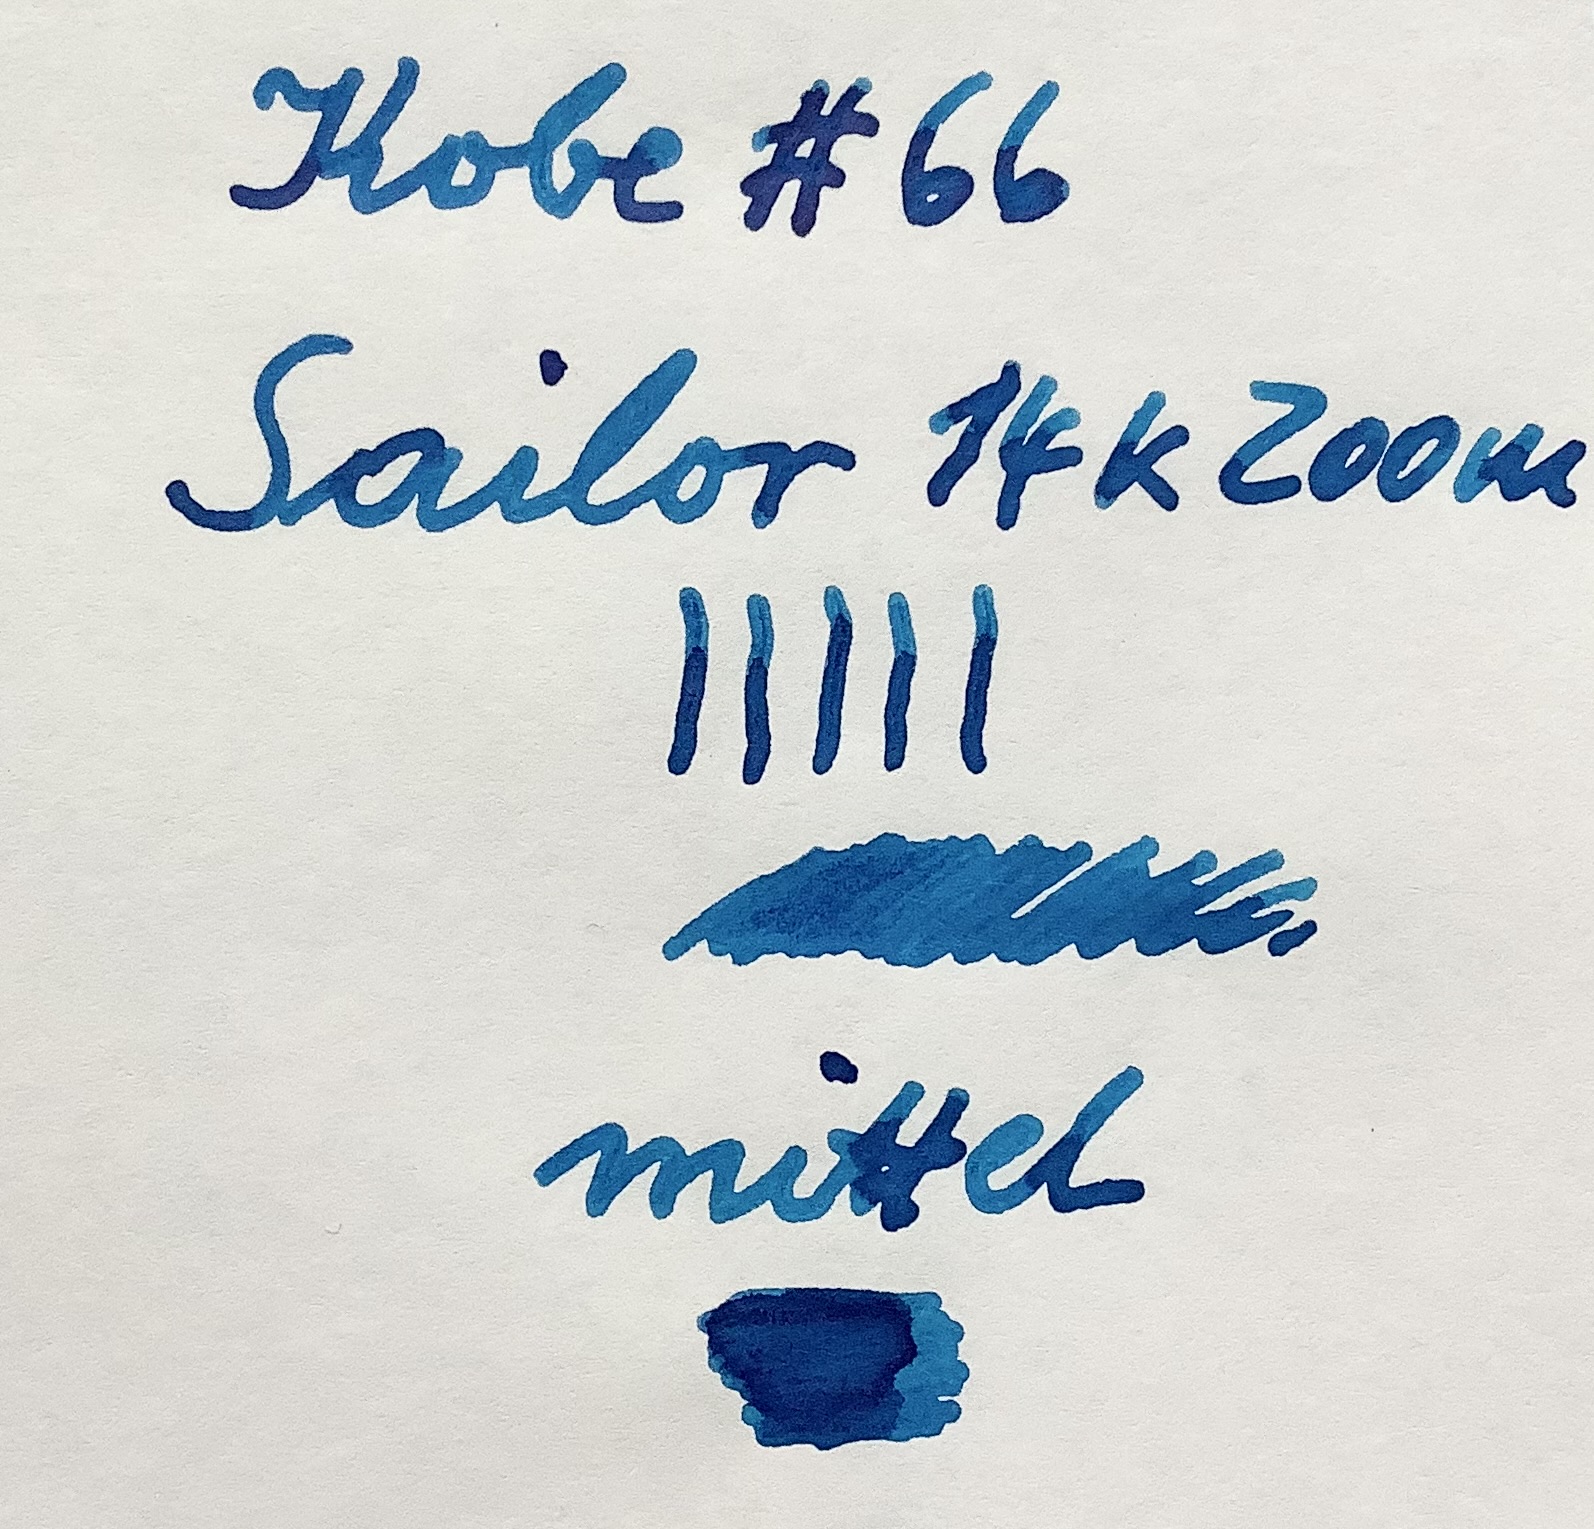 Kobe #66
Sailor 14k Zoom
mittel